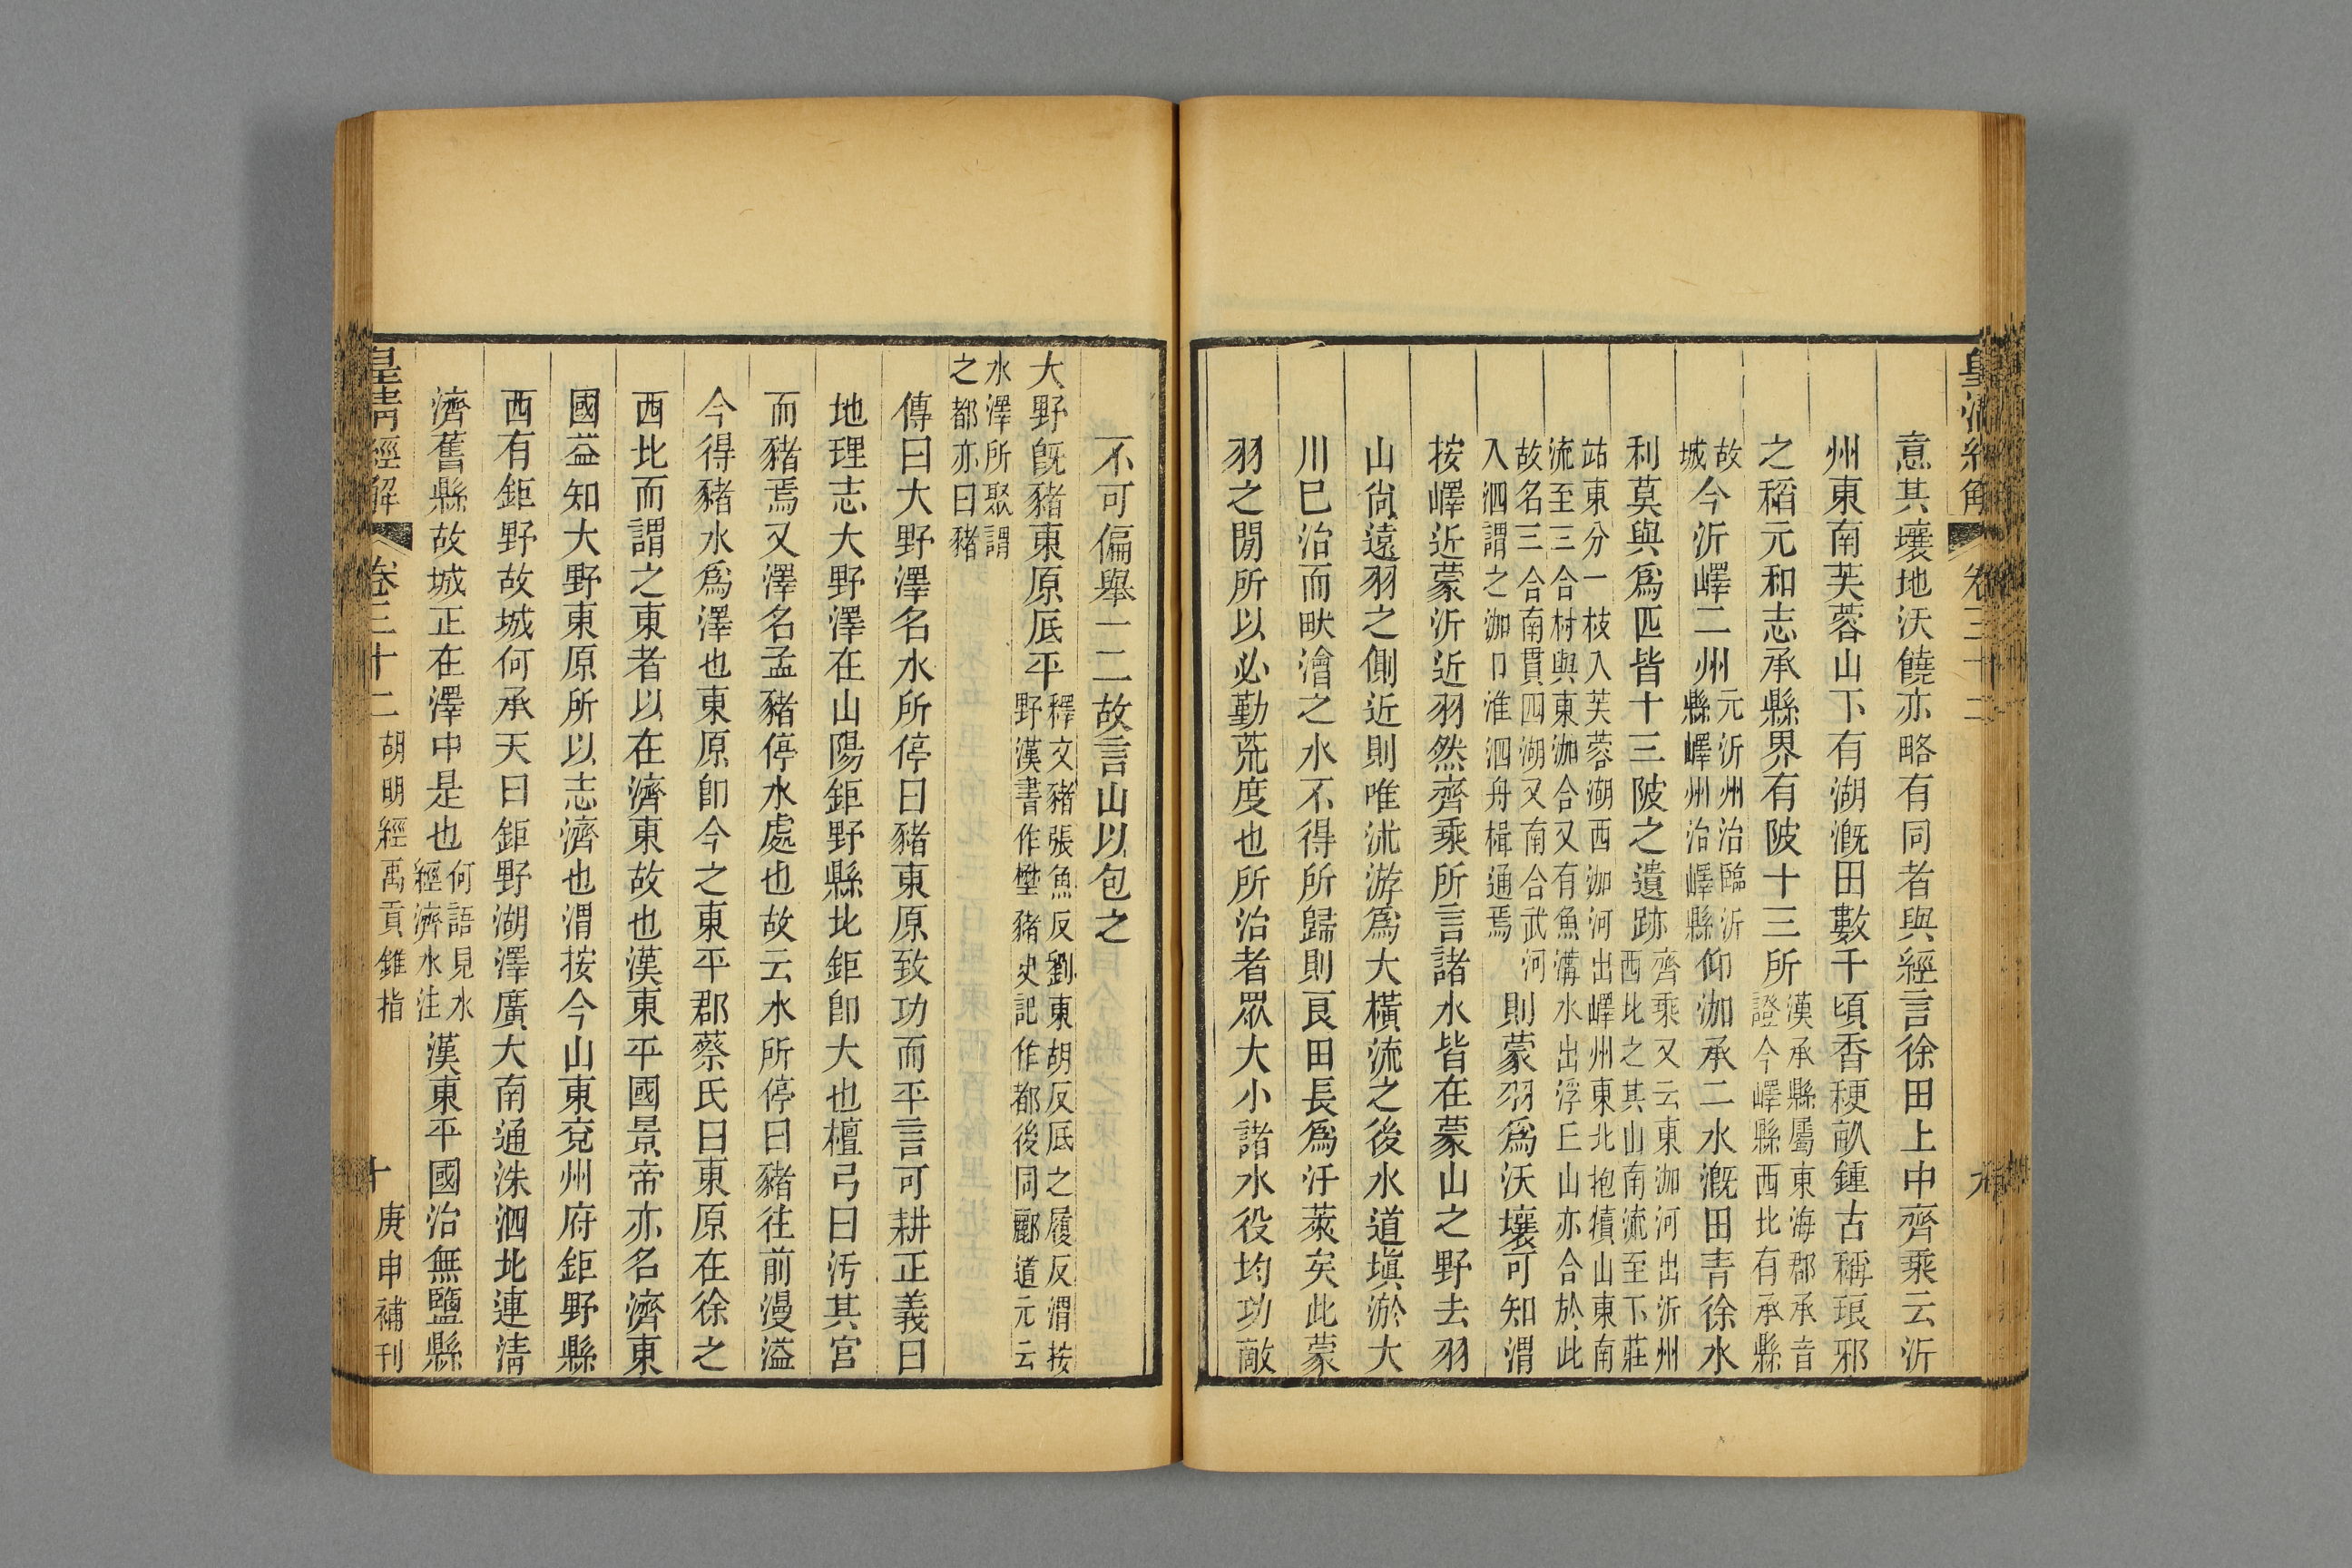 皇清經解 卷三十二 九
意其壤地沃饒亦略有同者與經言徐田上中齊乘云沂
州東南芙蓉山下有湖漑田數千頃香稉畝鍾古稱琅邪
之稻元和志承縣界有陂十三所漢承縣屬東海郡承音證今嶧縣西北有承縣
故城今沂嶧二州元沂州治臨沂縣嶧州治嶧縣仰泇承二水漑田青徐水
利莫與爲匹皆十三陂之遺跡齊乘又云東泇河出沂州西北之其山南流至下莊
站東分一枝入芙蓉湖西泇河出嶧州東北抱犢山東南流至三合村與東泇合又有魚溝水出浮丘山亦合於此
故名三合南貫四湖又南合武河入泗謂之泇口淮泗舟楫通焉則蒙羽爲沃壤可知渭
按嶧近蒙沂近羽然齊乘所言諸水皆在蒙山之野去羽
山尙遠羽之側近則唯沭游爲大橫流之後水道塡淤大
川已治而畎澮之水不得所歸則良田長爲汙萊矣此蒙
羽之閒所以必勤荒度也所治者眾大小諸水役均功敵
不可偏舉一二故言山以包之
大野旣豬東原厎平釋文豬張魚反劉東胡反厎之履反渭按野漢書作壄豬史記作都後同酈道元云
水澤所聚謂之都亦曰豬
傳曰大野澤名水所停曰豬東原致功而平言可耕正義曰
地理志大野澤在山陽鉅野縣北鉅卽大也檀弓曰汚其宮
而豬焉又澤名孟豬停水處也故云水所停曰豬往前漫溢
今得豬水爲澤也東原卽今之東平郡蔡氏曰東原在徐之
西北而謂之東者以在濟東故也漢東平國景帝亦名濟東
國益知大野東原所以志濟也渭按今山東兗州府鉅野縣
西有鉅野故城何承天曰鉅野湖澤廣大南通洙泗北連淸
濟舊縣故城正在澤中是也何語見水經濟水注漢東平國治無鹽縣
皇清經解 卷三十二 胡明經禹貢錐指 十 庚申補刊